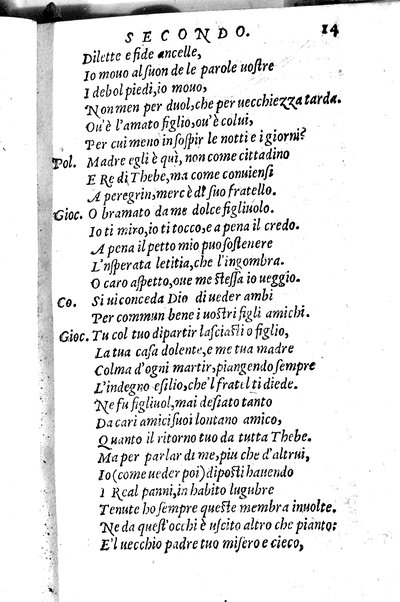 SECONDO. 14
Dilette e fide ancelle,
Io mouo al suon de le parole uostre
I debol piedi, io mouo,
Non men per duol, che per uecchiezza tarda.
Ou'è l'amato figlio, ou'è colui,
Per cui meno in sospir le notti e i giorni?
Pol. Madre egli è quì, non come cittadino
E Re di Thebe, ma come conuiensi
A peregrin, mercè di suo fratello.
Gioc. O bramato da me dolce figliuolo.
Io ti miro, io ti tocco, e a pena il credo.
A pena il petto mio puo sostenere
L'insperata letitia, che l'ingombra.
O caro aspetto, oue me stessa io ueggio.
Co. Si ui conceda Dio di ueder ambi
Per commun bene i uostri figli amici.
Gioc. Tu col tuo dipartir lasciasti o figlio,
La tua casa dolente, e me tua madre
Colma d'ogni martir, piangendo sempre
L'indegno esilio, che'l fratel ti diede.
Ne fu figliuol, mai desiato tanto
Da cari amici suoi lontano amico,
Quanto il ritorno tuo da tutta Thebe.
Ma per parlar di me, piu che d'altrui,
Io (come ueder poi) diposti hauendo
I Real panni, in habito lugubre
Tenute ho sempre queste membra inuolte.
Ne da quest'occhi è uscito altro che pianto:
E'l uecchio padre tuo misero e cieco,